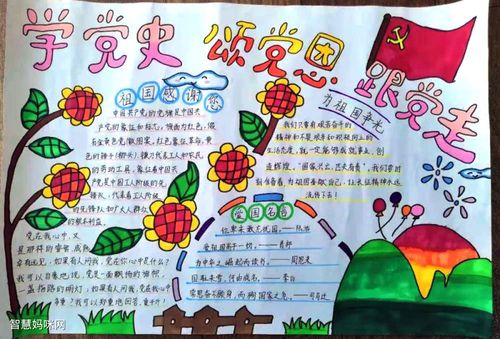 学党史 颂党恩 跟党走
祖国感谢您
中国共产党的党旗是中国共
产党的象征和标志,旗面为红色,缀
有金黄色党徽图案,红色象征革命,黄
色的锤子(镰刀)
的劳动工具,象征着中国共
产党是中国工人阶级的先
锋队,代表着工人阶级
的先锋队和广大人民群众
的根本利益。
党在我心中又
是那样的
如果有人问我,党在你心中是什么?
我可以自豪地说,党是一面飘扬的旗帜,
一盏指路的明灯,如果有人问我,党在我心中
多重?我可以郑重地回答,重千斤!
为祖国争光
我们只有艰苦奋斗的
精神和不畏艰辛积极向上的
生活态度,就一定能够成就事业,创
造辉煌。“国家兴亡,匹夫有责”,我们要时
刻准备着,为祖国奉献自己,让长征精神永远
流传下去!
爱国名言
位卑未敢忘忧国。——陆游
爱祖国高于一切。——肖邦
为中华之崛起而读书。——周恩来
国耻未雪,何由成名。——李白
常思奋不顾身,而殉国家之急。——司马迁
智慧妈咪网